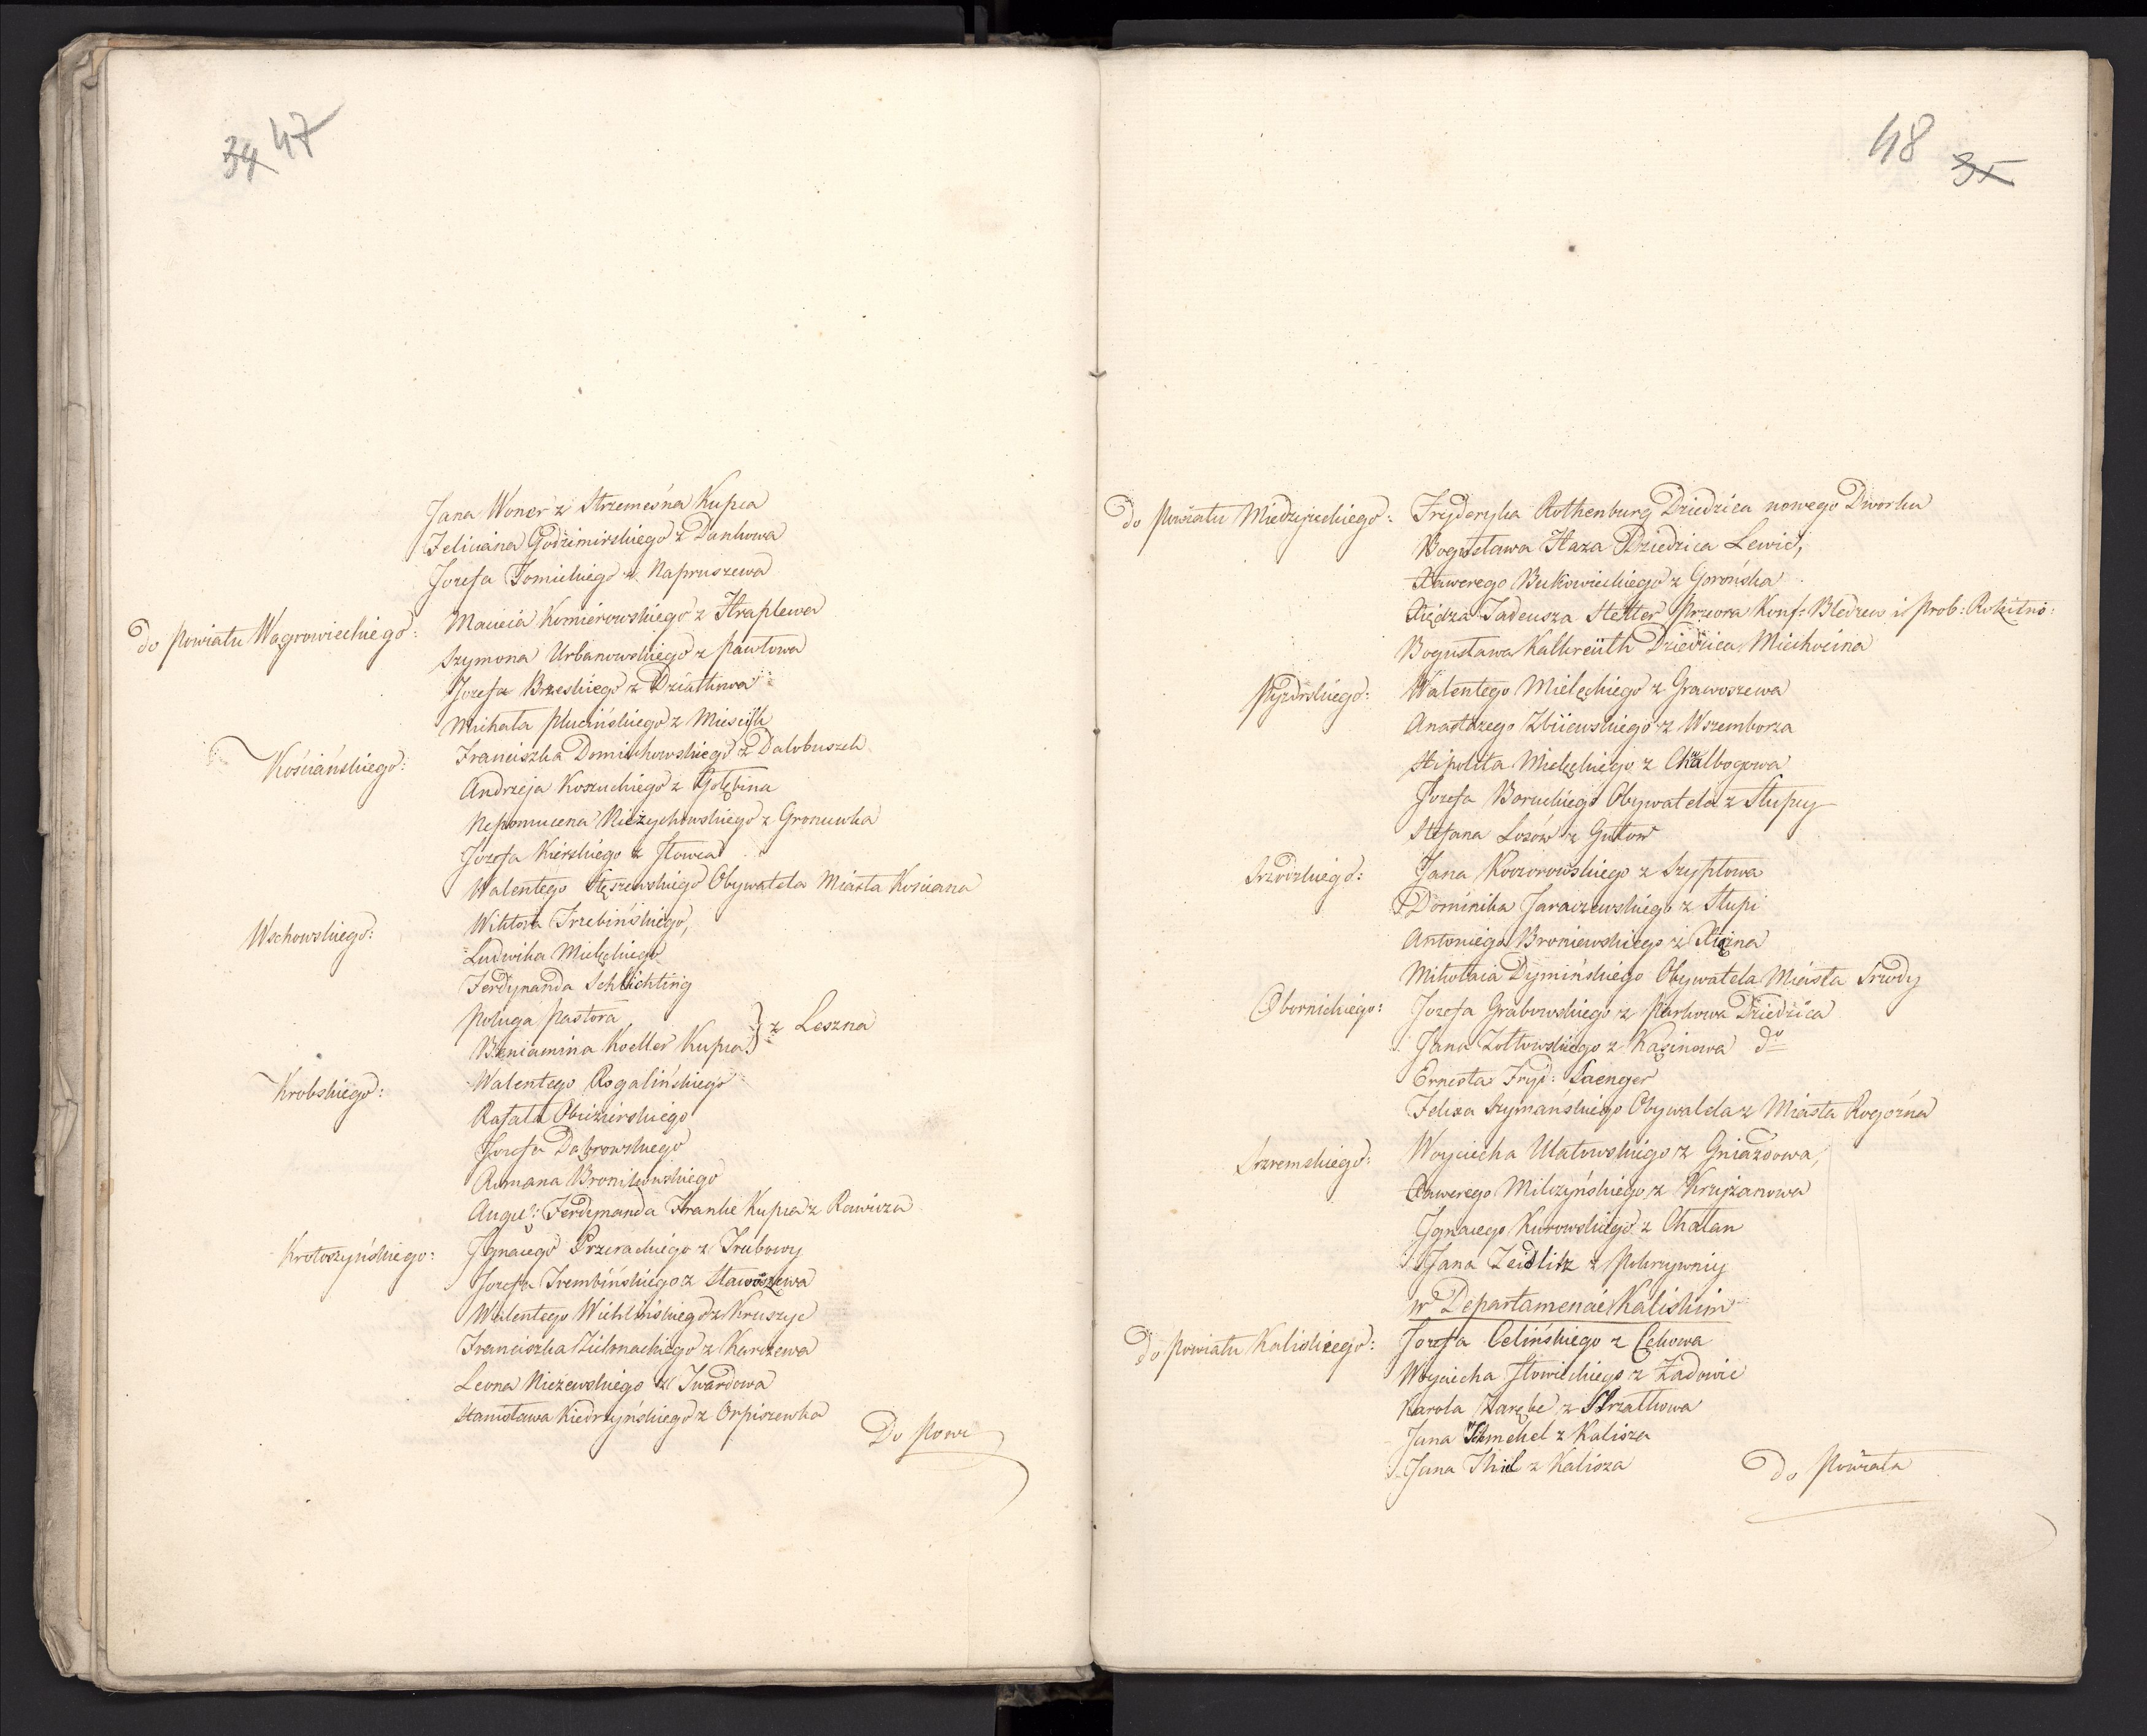 34 47
Jana Woner z Strzemeśna Kupca
Feliciana Godzimirskiego z Dankowa
Jozefa Tomickiego z Napruszewa
do Powiatu Wągrowieckiego: Macieia Komierowskiego z Straplewa
Szymona Urbanowskiego z Pawłowa
Jozefa Brzeskiego z Działkowa
Michała Plucińskiego z Miescisk
Kościańskiego: Franciszka Domiechowskiego z Dalobuszek
Andrzeja Koszuckiego z Gołębina
Nepomucena Nieżychowskiego z Gronuwka
Józefa Kierskiego z
Walentego Stęszewskiego Obywatela Miasta Kosciana
Wschowskiego: Wiktora Trzebińskiego,
Ludwika Mielęckiego
Ferdynanda Schlichting
Poluga Pastora
Beniamina Koeller Kupca } z Leszna
Krobskiego: Walentego Rogalińskiego
Rafała Obiezierskiego
Jozefa Dąbrowskiego
Romana Bronikowskiego
Augu: Ferdynanda Franke Kupca z Rawicza
Krotoszyńskiego: Ignacego Przeradzkiego z Trubowy
Jozefa Trembińskiego z Stawoszewa
Walentego Wichlińskiego z Kruszyc
Franciszka Zielonackiego z Karczewa
Leona Nieżewskiego z Twardowa
Stanisława Kiedrzyńskiego z Orpiszewka
Do Powi
48 35
do Powiatu Miedzyrzeckiego: Fryderyka Rothenburg Dziedzica nowego Dworku
Bogusława Haza Dziedzica Lewic,
Xawerego Bukowieckiego z Gorońska
Xiędza Tadeusza Stetter Przeora Konf: Bledzew i Prob: Rokitno:
Bogusława Kalkreüth Dziedzica Miechocina
Pyzdrskiego: Walentego Mielęckiego z Grawoszewa
Anastazego Zbiiewskiego z Wszemborza
Hipolita Mielęckiego z Chwalbogowa
Jozefa Boruckiego Obywatela z Słupcy
Stefana Losów z Gutow
Srzodzkiego: Jana Koczorowskiego z Szypłowa
Dominika Jaraczewskiego z Słupi
Antoniego Broniewskiego z
Mikołaia Dymińskiego Obywatela Miasta Srzody
Obornickiego: Jozefa Grabowskiego z Parkowa Dziedzica
Jana Zołtowskiego z Kąsinowa do
Ernesta Fryd: Saenger
Felixa Szymańskiego Obywatela z Miasta Rogoźna
Szremskiego: Woyciecha Ulatowskiego z Gniazdowa,
Xawerego Milczyńskiego z Kruiżanowa
Ignacego Kurowskiego z Chałan
Jana Zeidlitz z Pokrzywnicy
w Departamencie Kaliskim
do Powiatu Kaliskiego: Jozefa Celińskiego z Cekowa
Woyciecha Iłowieckiego z Żadowic
Karola Zarębe z Skrzatkowa
Jana Schmekel z Kalisza
Jana Thiel z Kalisza
do Powiatu